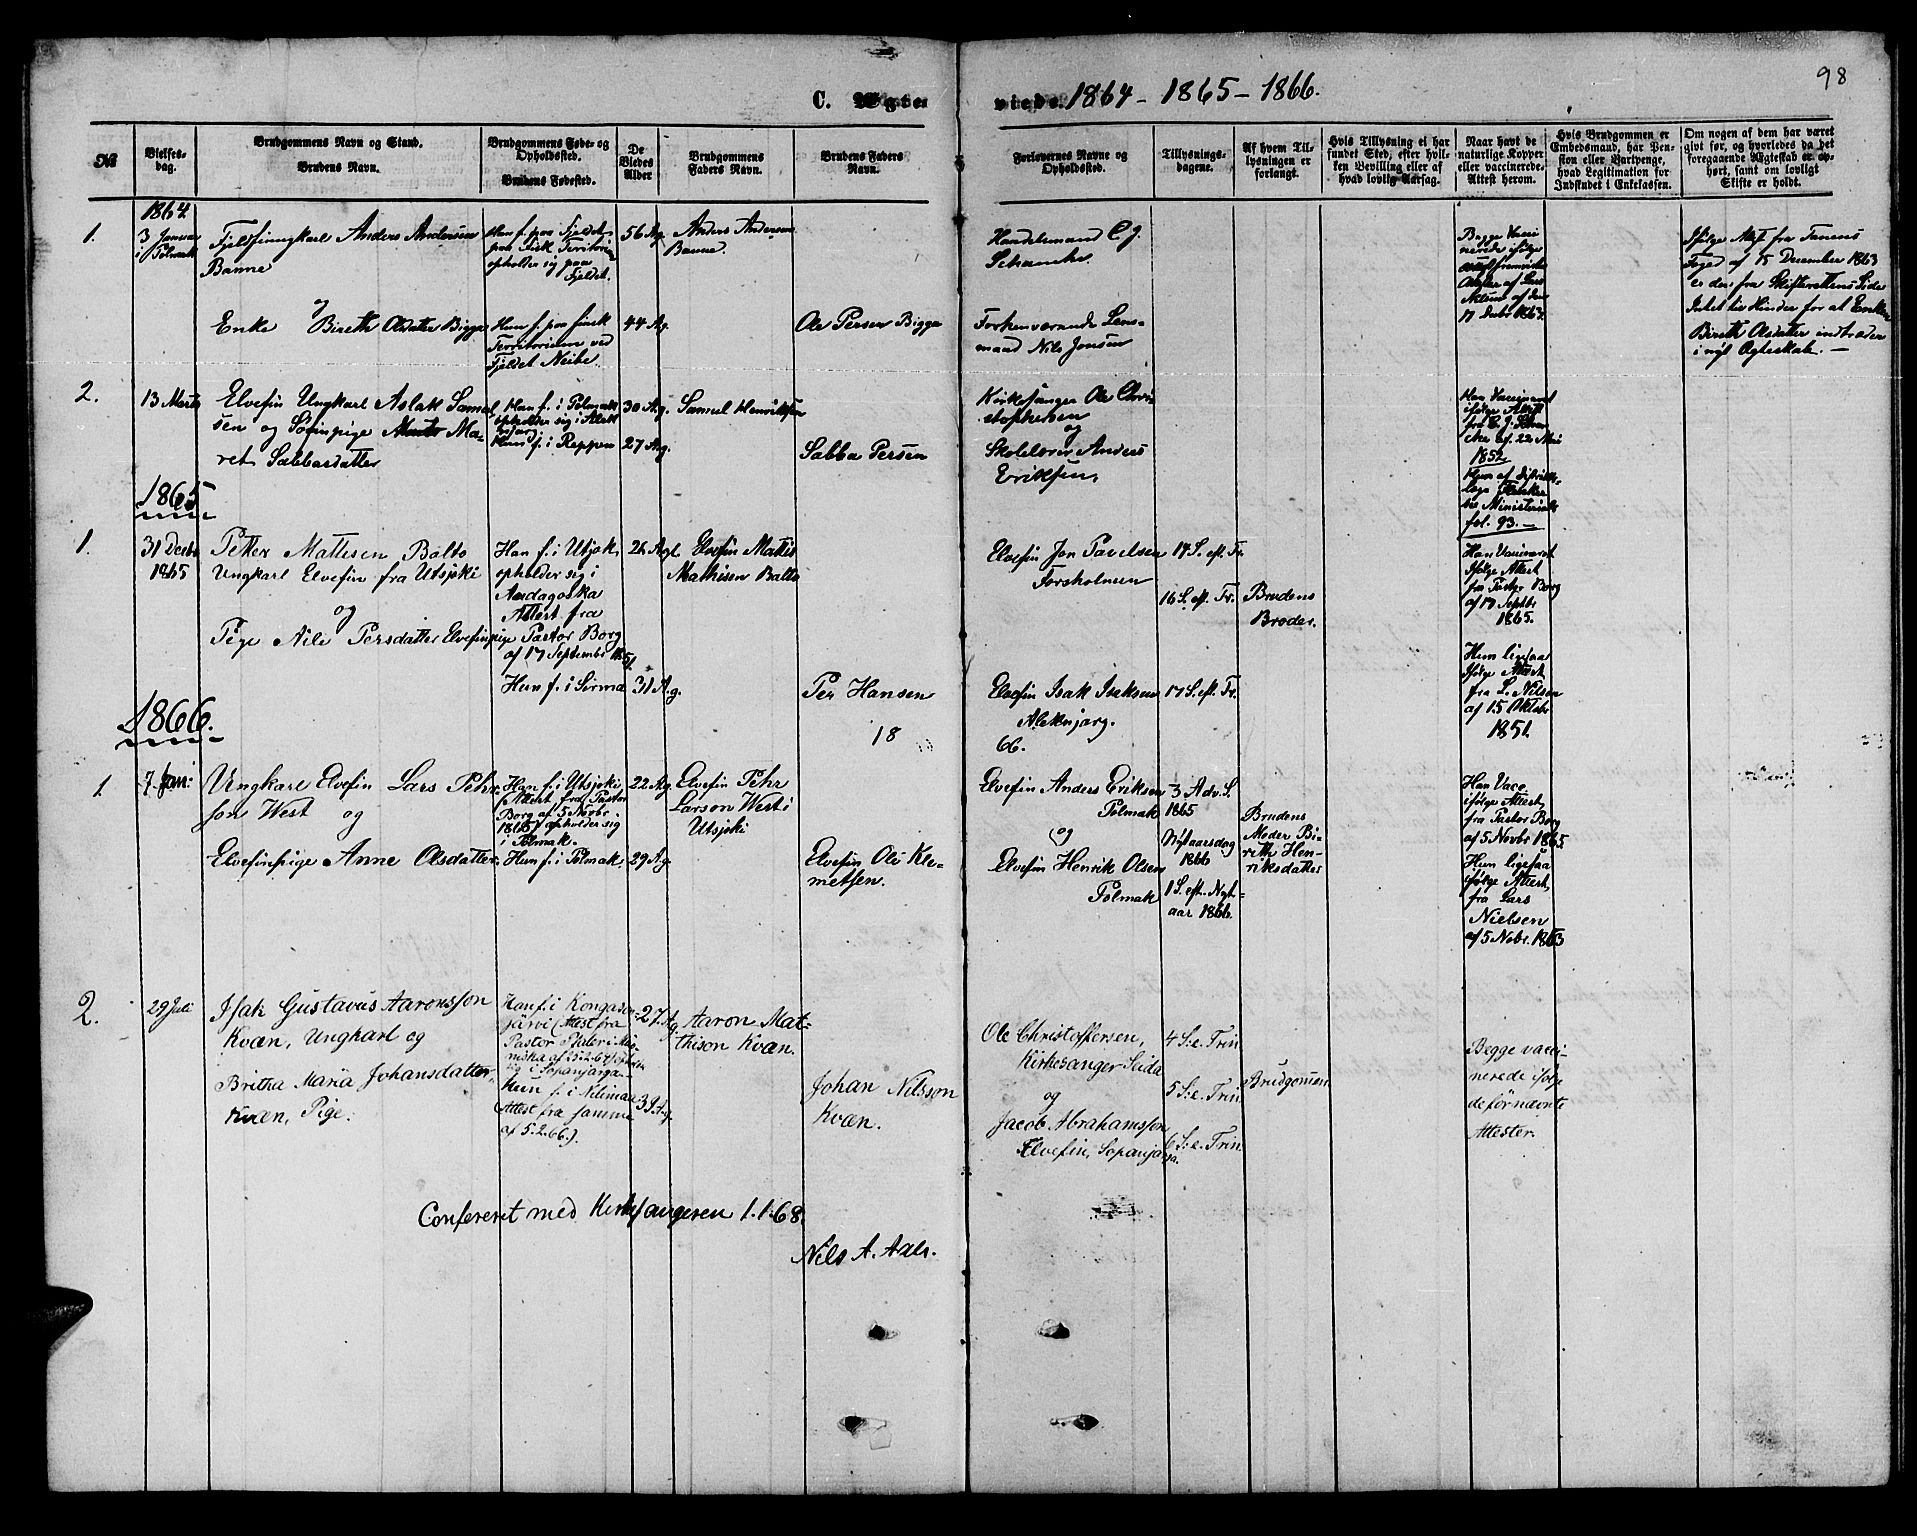 98
C. Ægte
viede. 1864 - 1865 - 1866.
№
Vielses-
dag.
Brudgommens Navn og Stand.
Brudens Navn.
Brudgommens Føde- og
Opholdssted.
Brudens Fødested.
De
Viedes
Alder
Brudgommens
Faders Navn.
Brudens Faders
Navn.
Forlovernes Navne og
Opholdssted.
Tillysnings-
dagene.
Af hvem Til-
lysningen er
forlangt.
Hvis Tillysning ei har
fundet Sted, efter hvil-
ken Bevilling eller af
hvad lovlig Aarsag.
Naar havt de
naturlige Kopper
eller vaccinerede.
Attest herom.
Hvis Brudgommen er
Embedsmand, har Pen-
sion eller Vartpenge,
hvad Legitimation for
Indskud i Enkekassen.
Om nogen af dem har været
gift før, og hvorledes da det
foregaaende Ægteskab er op-
hørt, samt om lovligt
Skifte er holdt.
1864.
1.
3 Januar
i Polmak
Fjeldfinungkarl Anders Andersen
Banne
og
Enke Bireth Olsdatter Bigga
Han f. paa Fjeldet
paa finsk Territori
opholder sig paa
Fjeldet.
Hun f. paa finsk
Territorium ved
Fjeldet Neibe.
56 Ag.
44 Ag.
Anders Andersen
Banne.
Ole Persen Bigga
Handelsmand C. J.
Schanche
Forhenværende Lens-
mand Nils Jonsen
Begge Vacci
nerede ifølge
Attester af Lars
Nilsen af den
17 Decbr 1863.
Ifølge Attest fra Tanens
Foged af 15 December 1863
er der fra Skifterettens Side
Intet til Hinder for at Enken
Bireth Olsdatter indtræder
i nyt Ægteskab. —
2.
13 Marts
Elvefin Ungkarl Aslak Samuel
sen og Søfinpige Ma-
ret Sabbasdatter
Han f. i Polmak
opholder sig i Alek
njarg
Hun f. i Reppen
30 Ag.
27 Ag.
Samuel Henriksen
Sabba Persen
Kirkesanger Ole Chri
stophersen
og
Skolelærer Anders
Eriksen.
Han Vaccineret
ifølge Attest
fra C. J. Schan
che af 22 Mai
1852
Hun af Distrikts-
læge
se Ministerialb
fol. 93. —
1865
1.
31 Decbr
1865
Petter Mattisen Balto
Ungkarl Elvefin fra Utsjoki
og
Pige Nile Persdatter Elvefinpige
Han f. i Utsjok,
opholder sig i
Andagoska
Attest fra
Pastor Borg
af 17 Septembr 1865.
Hun f. i Sirma
26 Ag.
31 Ag.
Elvefin Mattis
Mathisen Balto
Per Hansen
18
Elvefin Jon Pavelsen
Forsholmen
Elvefin Isak Isaksen
Aleknjarg.
66.
17 S. eft. Tr.
16 S. eft. Tr.
17 S. eft. Tr.
Brudens
Broder.
Han Vaccineret
Ifølge Attest
fra Pastor Borg
af 17 Septbr
1865.
Hun ligesaa
Ifølge Attest
fra L. Nilsen
af 15 Oktobr
1851.
1866.
1.
7 Jan:
Ungkarl Elvefin Lars Pehr-
son West og
Elvefinpige Anne Olsdatter.
Han f. i Utsjoki
(Attest fra Pastor
Borg af 5 Novbr
1865) opholder sig
i Polmak.
Hun f. i Polmak.
22 Ag.
29 Ag.
Elvefin Pehr
Larson West i
Utsjoki
Elvefin Ole Kle-
metsen.
Elvefin Anders Eriksen
Polmak
og
Elvefin Henrik Olsen
Polmak
3 Adv. S.
1865
Nytaarsdag
1866
1 S. eft. Nyt-
aar 1866.
Brudens
Moder Bi-
reth Hen-
riksdatter
Han Vacc.
ifølge Attest
fra Pastor Borg
af 5 Novbr 1865
Hun ligesaa
ifølge Attest
fra Lars
Nielsen
af 5 Nobr. 1863
2.
29 Juli
Isak Gustavus Aaronsson
Kvæn, Ungkarl og
Britha Maria Johansdatter,
Kvæn, Pige.
Han f. i Kongäsen-
järvi (Attest fra
Pastor
Hun f. i Nilimaa
(Attest fra samme
af 5.2.66.).
27 Ag.
Aaron Mat-
thison Kvæn.
Johan Nilsson
Kvæn.
Ole Christoffersen,
Kirkesanger Seida
og
Jacob Abrahamsson
Elvefin, Sopanjarga.
4 S: e. Trin
5 S: e. Trin
6 S: e. Trin
Brudgommen
Begge vacci-
nerede ifølge
de førnævnte
Attester.
Confereret med Kirkesangeren 1.1.68.
Nils A. Aall.